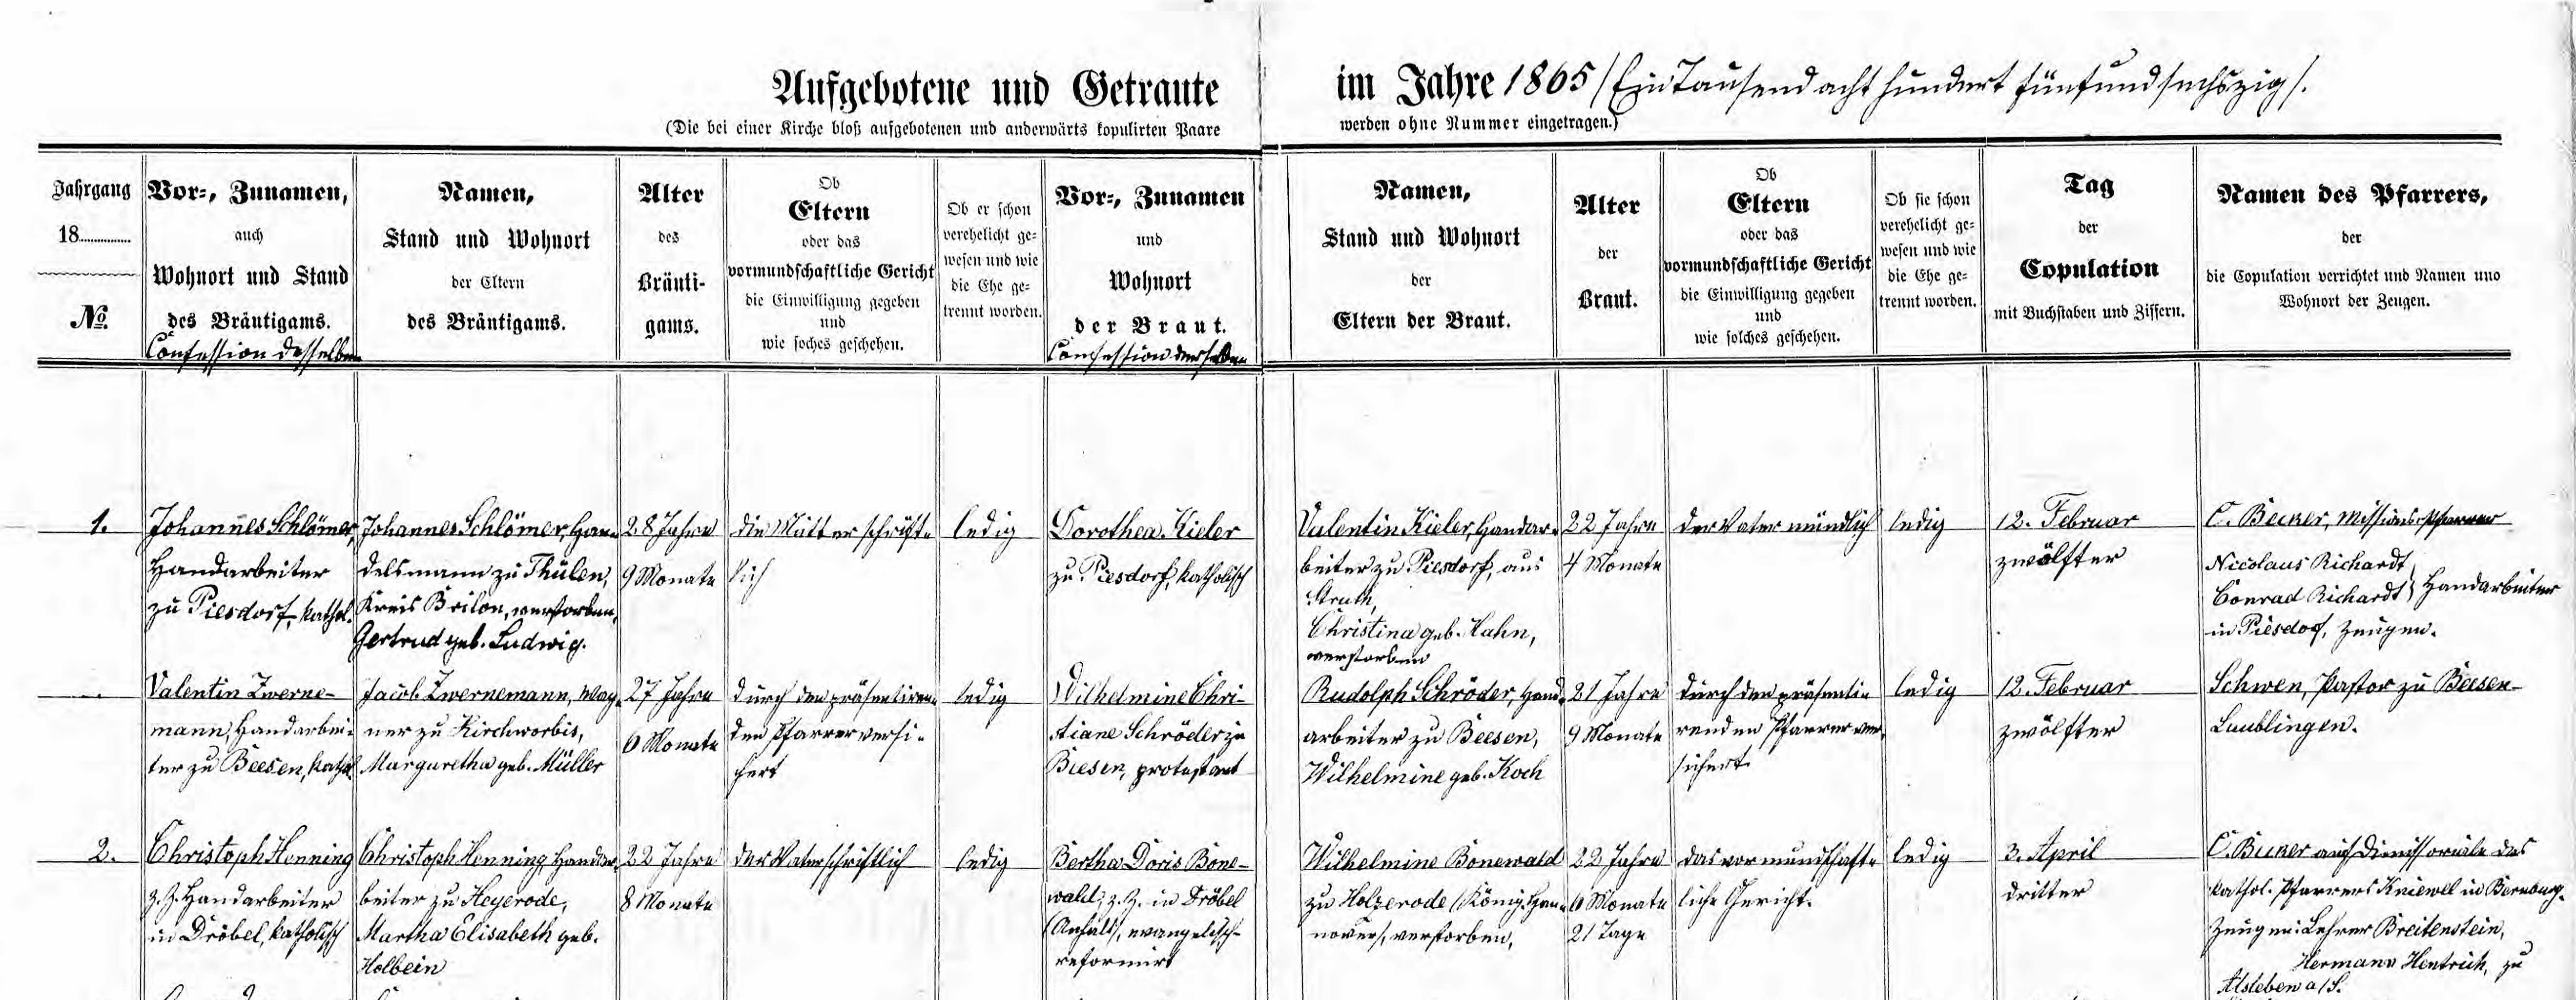 Aufgebotene und Getraute im Jahre 1865 /Ein Tausend acht hundert fünfundsechszig/.
(Die bei einer Kirche bloß aufgebotenen und anderwärts kopulirten Paare werden ohne Nummer eingetragen.)
Jahrgang
18..............
No.
Vor=, Zunamen,
auch
Wohnort und Stand
des Bräutigams.
Confession desselben
Namen,
Stand und Wohnort
der Eltern
des Bräutigams.
Alter
des
Bräuti-
gams.
Ob
Eltern
oder das
vormundschaftliche Gericht
die Einwilligung gegeben
und
wie soches geschehen.
Ob er schon
verehelicht ge=
wesen und wie
die Ehe ge=
trennt worden.
Vor=, Zunamen
und
Wohnort
der Braut.
Confession derselben
Namen,
Stand und Wohnort
der
Eltern der Braut.
Alter
der
Braut.
Ob
Eltern
oder das
vormundschaftliche Gericht
die Einwilligung gegeben
und
wie solches geschehen.
Ob sie schon
verehelicht ge=
wesen und wie
die Ehe ge=
trennt worden.
Tag
der
Copulation
mit Buchstaben und Ziffern.
Namen des Pfarrers,
der
die Copulation verrichtet und Namen und
Wohnort der Zeugen.
1.
Johannes Schlömer,
Handarbeiter
zu Piesdorf, kathol.
Johannes Schlömer, Han=
delsmann zu Thülen,
Kreis Brilon, verstorben,
Gertrud geb. Ludwig.
28 Jahre
9 Monate
die Mutter schrift=
lich
ledig
Dorothea Kieler
zu Piesdorf, katholisch
Valentin Kieler, Handar=
beiter zu Piesdorf, aus
Struth,
Christina geb. Hahn,
verstorben
22 Jahre
4 Monate
der Vater mündlich
ledig
12. Februar
zwölfter
C. Becker, Missionspfarrer
Nicolaus Richardt
Conrad Richardt } Handarbeiter
in Piesdorf, Zeugen.
Valentin Zwerne-
mann, Handarbei=
ter zu Beesen, kathol.
Jacob Zwernemann, Wag=
ner zu Kirchworbis,
Margaretha geb. Müller
27 Jahre
6 Monate
durch den präsentiren=
den Pfarrer versi=
chert
ledig
Wilhelmine Chri-
stiane Schröder zu
Beesen, protestant
Rudolph Schröder, Hand=
arbeiter zu Beesen,
Wilhelmine geb. Koch
21 Jahre
9 Monate
durch den präsenti=
renden Pfarrer ver=
sichert
ledig
12. Februar
zwölfter
Schwen, Pastor zu Beesen-
Laublingen.
2.
Christoph Henning
z. Z. Handarbeiter
in Dröbel, katholisch
Christoph Henning, Handar=
beiter zu Heyerode,
Martha Elisabeth geb.
Holbein
22 Jahre
8 Monate
der Vater schriftlich
ledig
Bertha Doris Bone-
wald, z. Z. in Dröbel
(Anhalt), evangelisch-
reformirt
Wilhelmine Bonewald
zu Holzerode (König. Han=
nover), verstorben,
22 Jahre
6 Monate
21 Tage
das vormundschaft=
liche Gericht.
ledig
3. April
dritter
C. Becker auf Dimissoriale des
kathol. Pfarrers Kniewel in Bernburg.
Zeugen: Lehrer Breitenstein,
Hermann Hentrich, zu
Alsleben a/S.